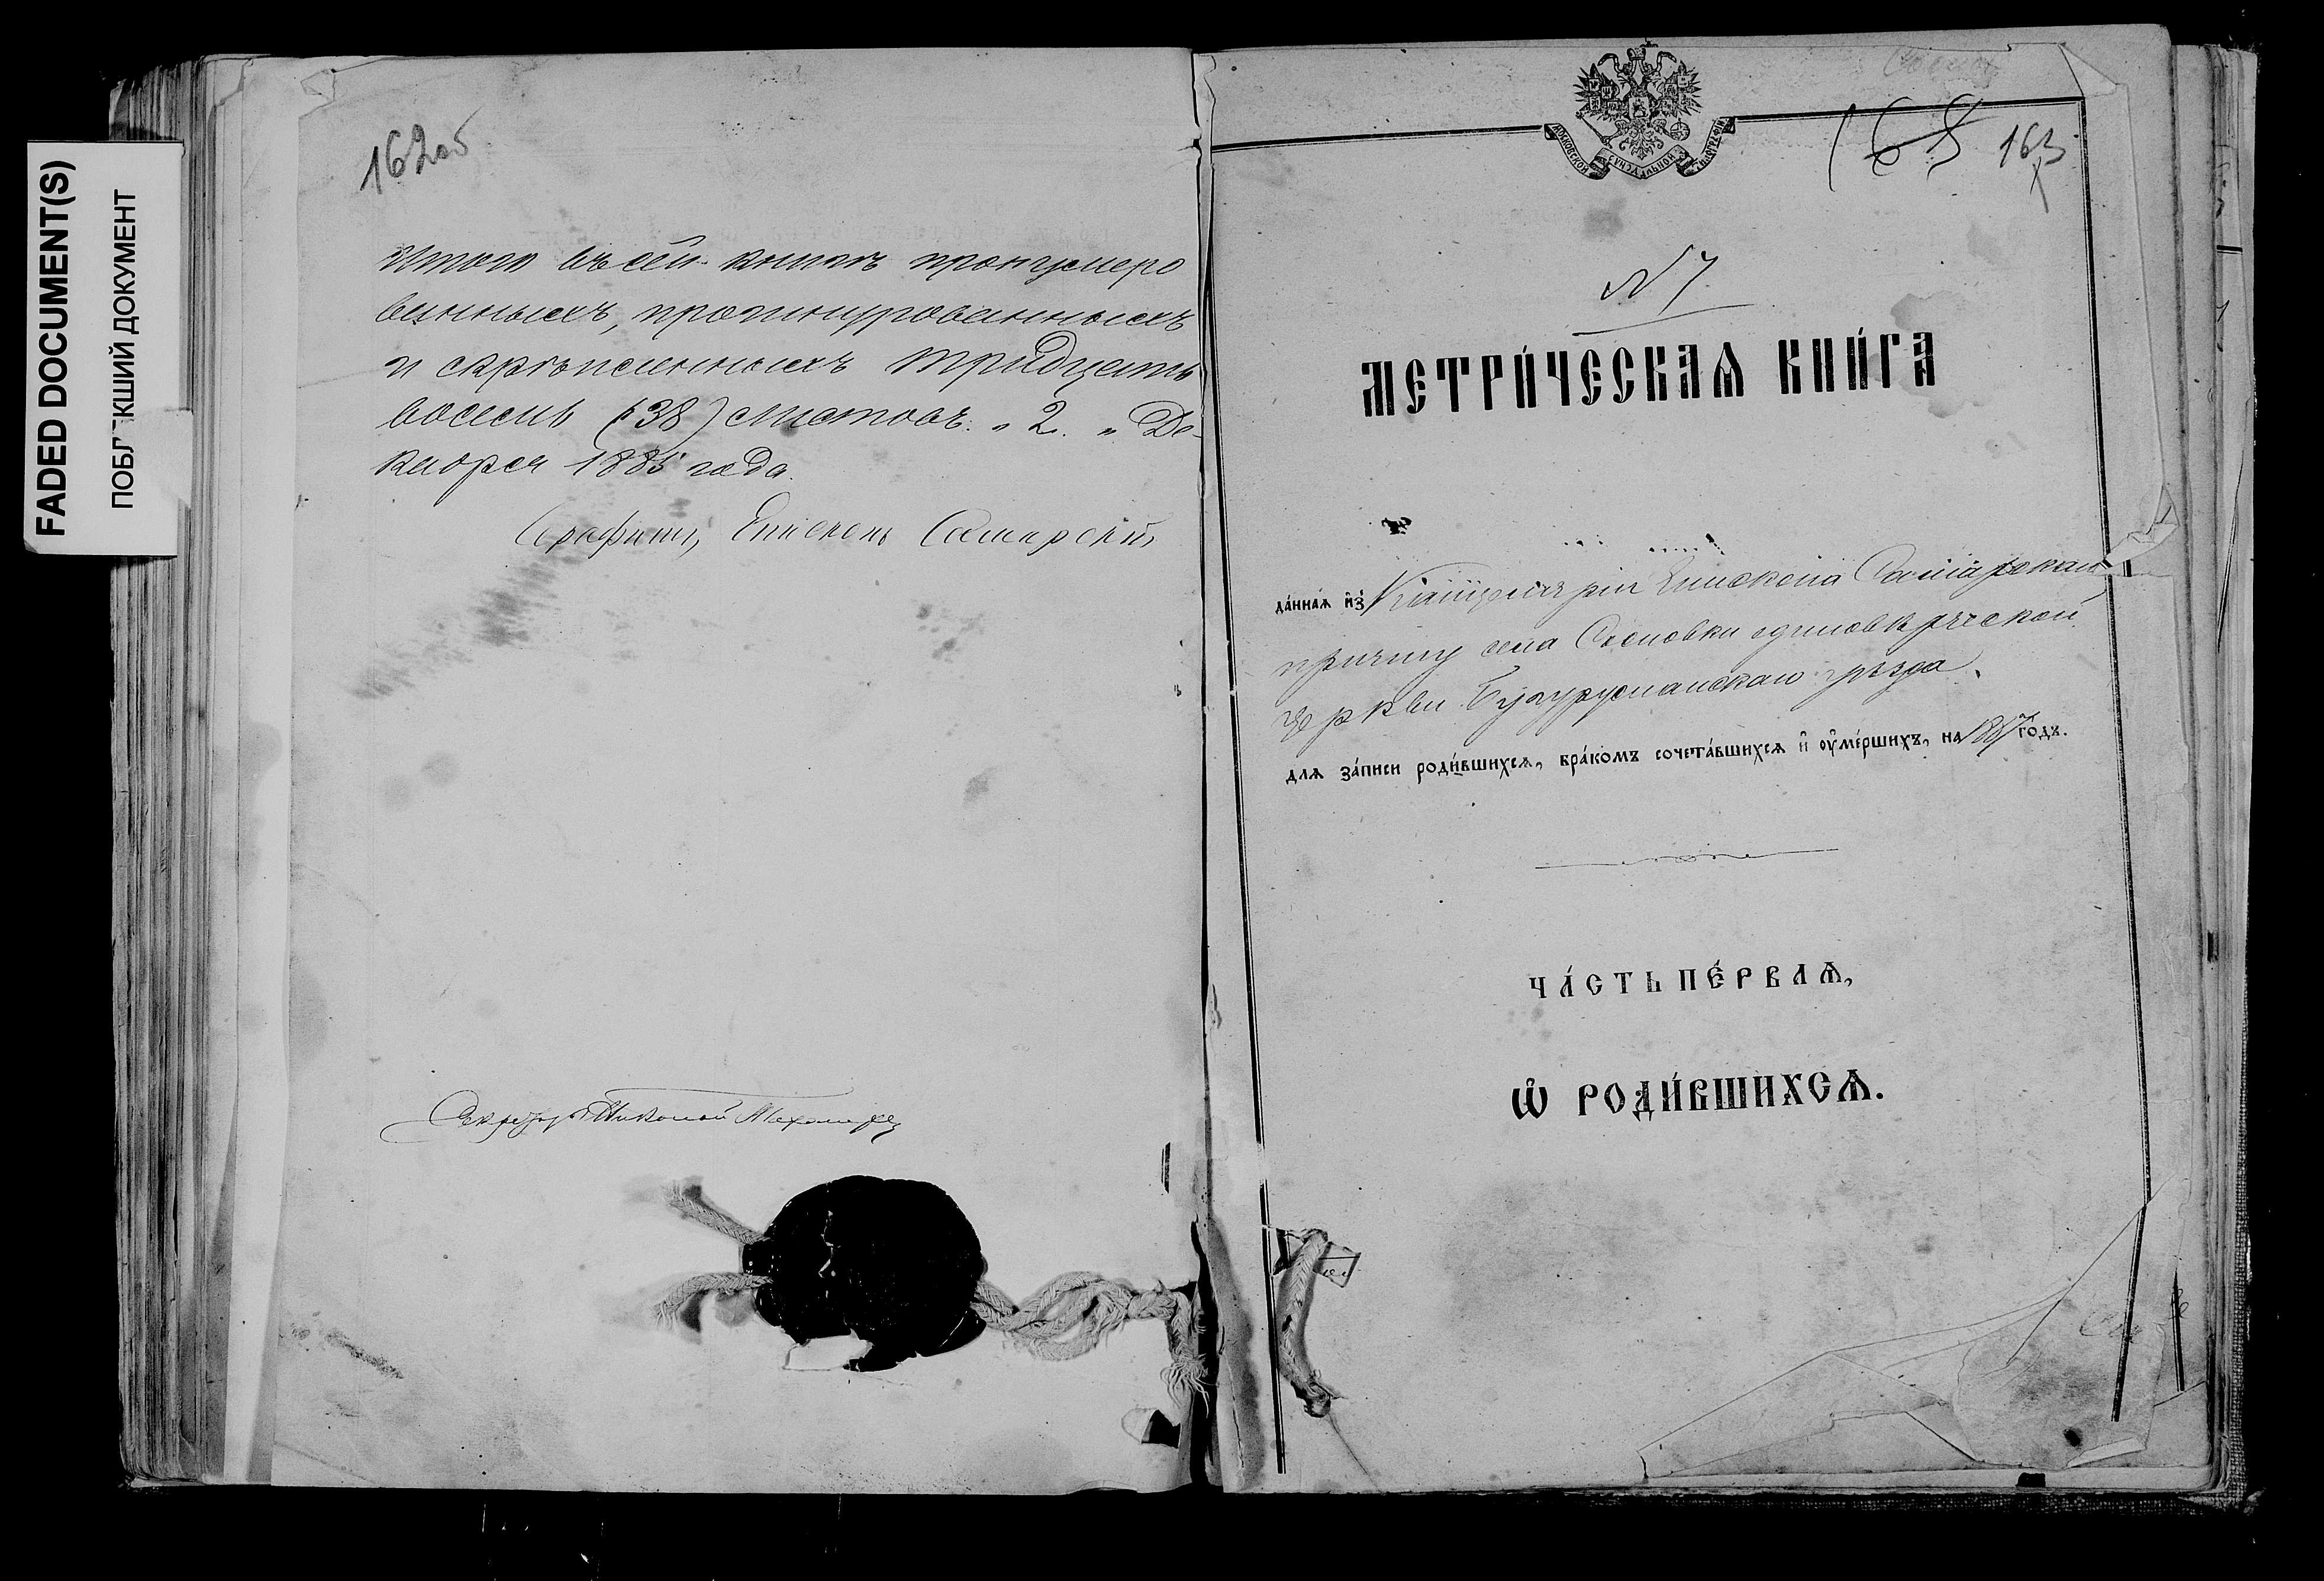 FADED DOCUMENT(S)
ПОБЛЕКШИЙ ДОКУМЕНТ
162об
Итого въ сей книгѣ пронумеро
ванныхъ, прошнурованныхъ
и скрѣпленныхъ тридцать
восемь (38) листовъ. „2„ Де-
кабря 1885 года.
Серафимъ, Епископъ Самарскій
Секретарь Николай
МОСКОВСКОЙ СѴНОДАЛЬНОЙ ТИПОГРАФІИ
168 163
№ 7
МЕТРИ́ЧЕСКАѦ КНИ́ГА
да́ннаѧ и҆з̾ Канцеляріи Епископа Самарскаго
причту села Сосновки единовѣрческой
церкви Бугурусланскаго уѣзда.
длѧ за́писи роди́вшихсѧ, бра́комъ сочета́вшихсѧ и҆ ᲂу҆ме́ршихъ, на 1887 го́дъ.
ЧА́СТЬ ПЕ́РВАѦ,
Ѽ РОДИ́ВШИХСѦ.